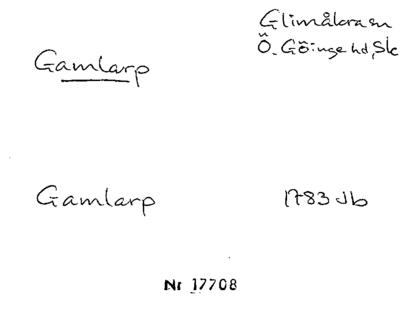 Glimåkra sn
Ö. Göinge hd, Sk
Gamlarp
Gamlarp 1783 Jb
Nr 17708